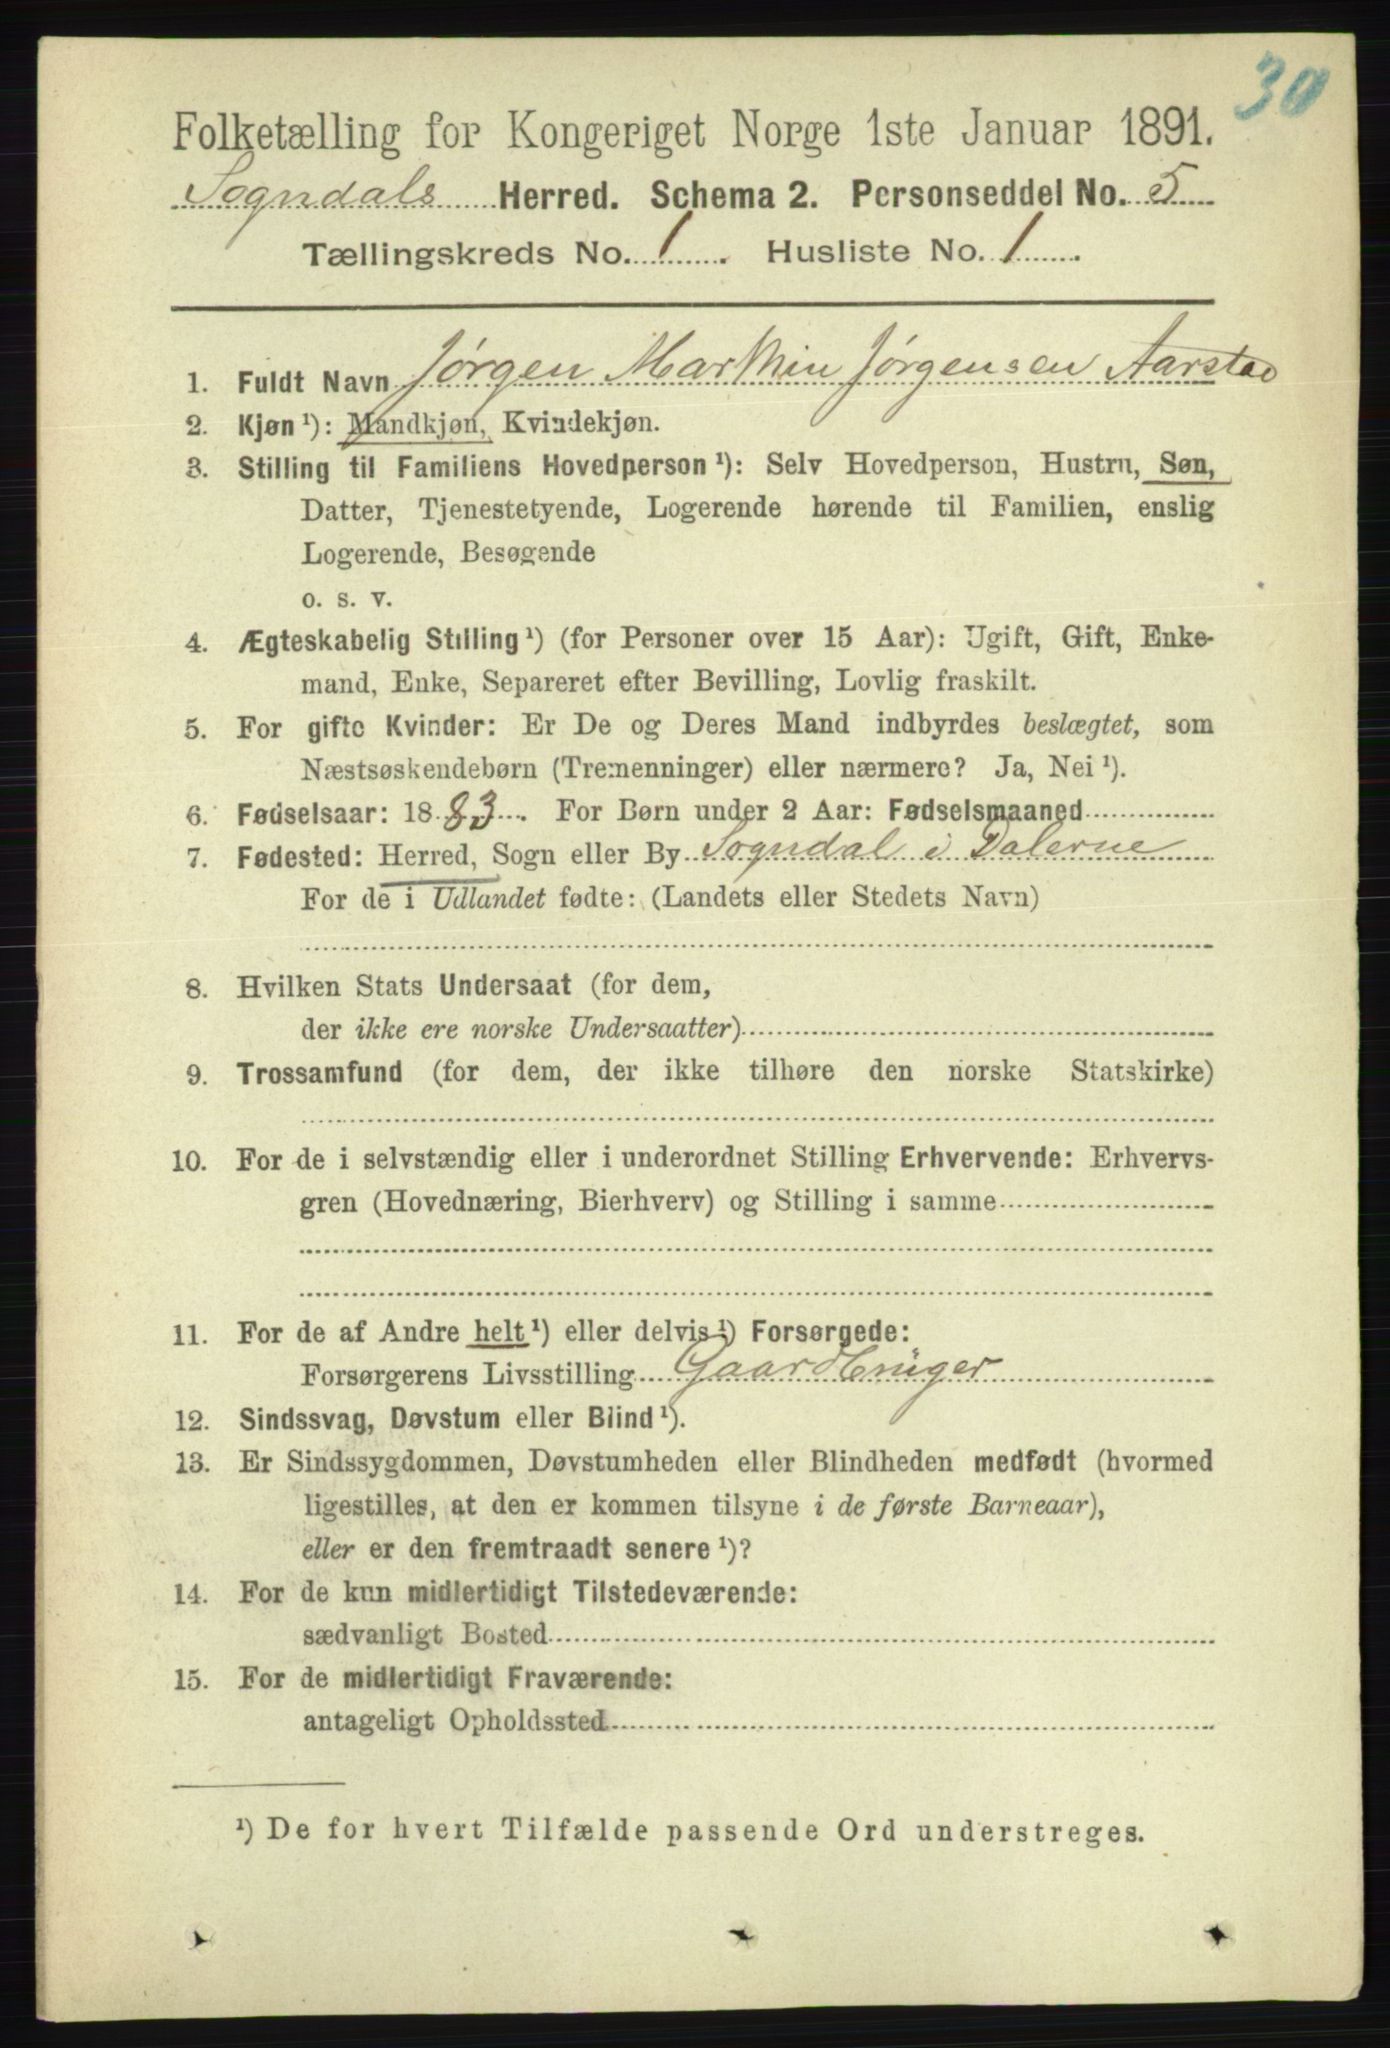 30
Folketælling for Kongeriget Norge 1ste Januar 1891.
Sogndals Herred. Schema 2. Personseddel No. 5
Tællingskreds No. 1. Husliste No. 1.
1. Fuldt Navn Jørgen Marthin Jørgensen Aarstad
2. Kjøn ¹): Mandkjøn, Kvindekjøn.
3. Stilling til Familiens Hovedperson ¹): Selv Hovedperson, Hustru, Søn,
Datter, Tjenestetyende, Logerende hørende til Familien, enslig
Logerende, Besøgende
o. s. v.
4. Ægteskabelig Stilling ¹) (for Personer over 15 Aar): Ugift, Gift, Enke-
mand, Enke, Separeret efter Bevilling, Lovlig fraskilt.
5. For gifte Kvinder: Er De og Deres Mand indbyrdes beslægtet, som
Næstsøskendebørn (Tremenninger) eller nærmere? Ja, Nei ¹).
6. Fødselsaar: 1883. For Børn under 2 Aar: Fødselsmaaned
7. Fødested: Herred, Sogn eller By Sogndal i Dalerne
For de i Udlandet fødte: (Landets eller Stedets Navn)
8. Hvilken Stats Undersaat (for dem,
der ikke ere norske Undersaatter)
9. Trossamfund (for dem, der ikke tilhøre den norske Statskirke)
10. For de i selvstændig eller i underordnet Stilling Erhvervende: Erhvervs-
gren (Hovednæring, Bierhverv) og Stilling i samme
11. For de af Andre helt ¹) eller delvis ¹) Forsørgede:
Forsørgerens Livsstilling Gaardbruger
12. Sindssvag, Døvstum eller Blind ¹).
13. Er Sindssygdommen, Døvstumheden eller Blindheden medfødt (hvormed
ligestilles, at den er kommen tilsyne i de første Barneaar),
eller er den fremtraadt senere ¹)?
14. For de kun midlertidigt Tilstedeværende:
sædvanligt Bosted
15. For de midlertidigt Fraværende:
antageligt Opholdssted
¹) De for hvert Tilfælde passende Ord understreges.